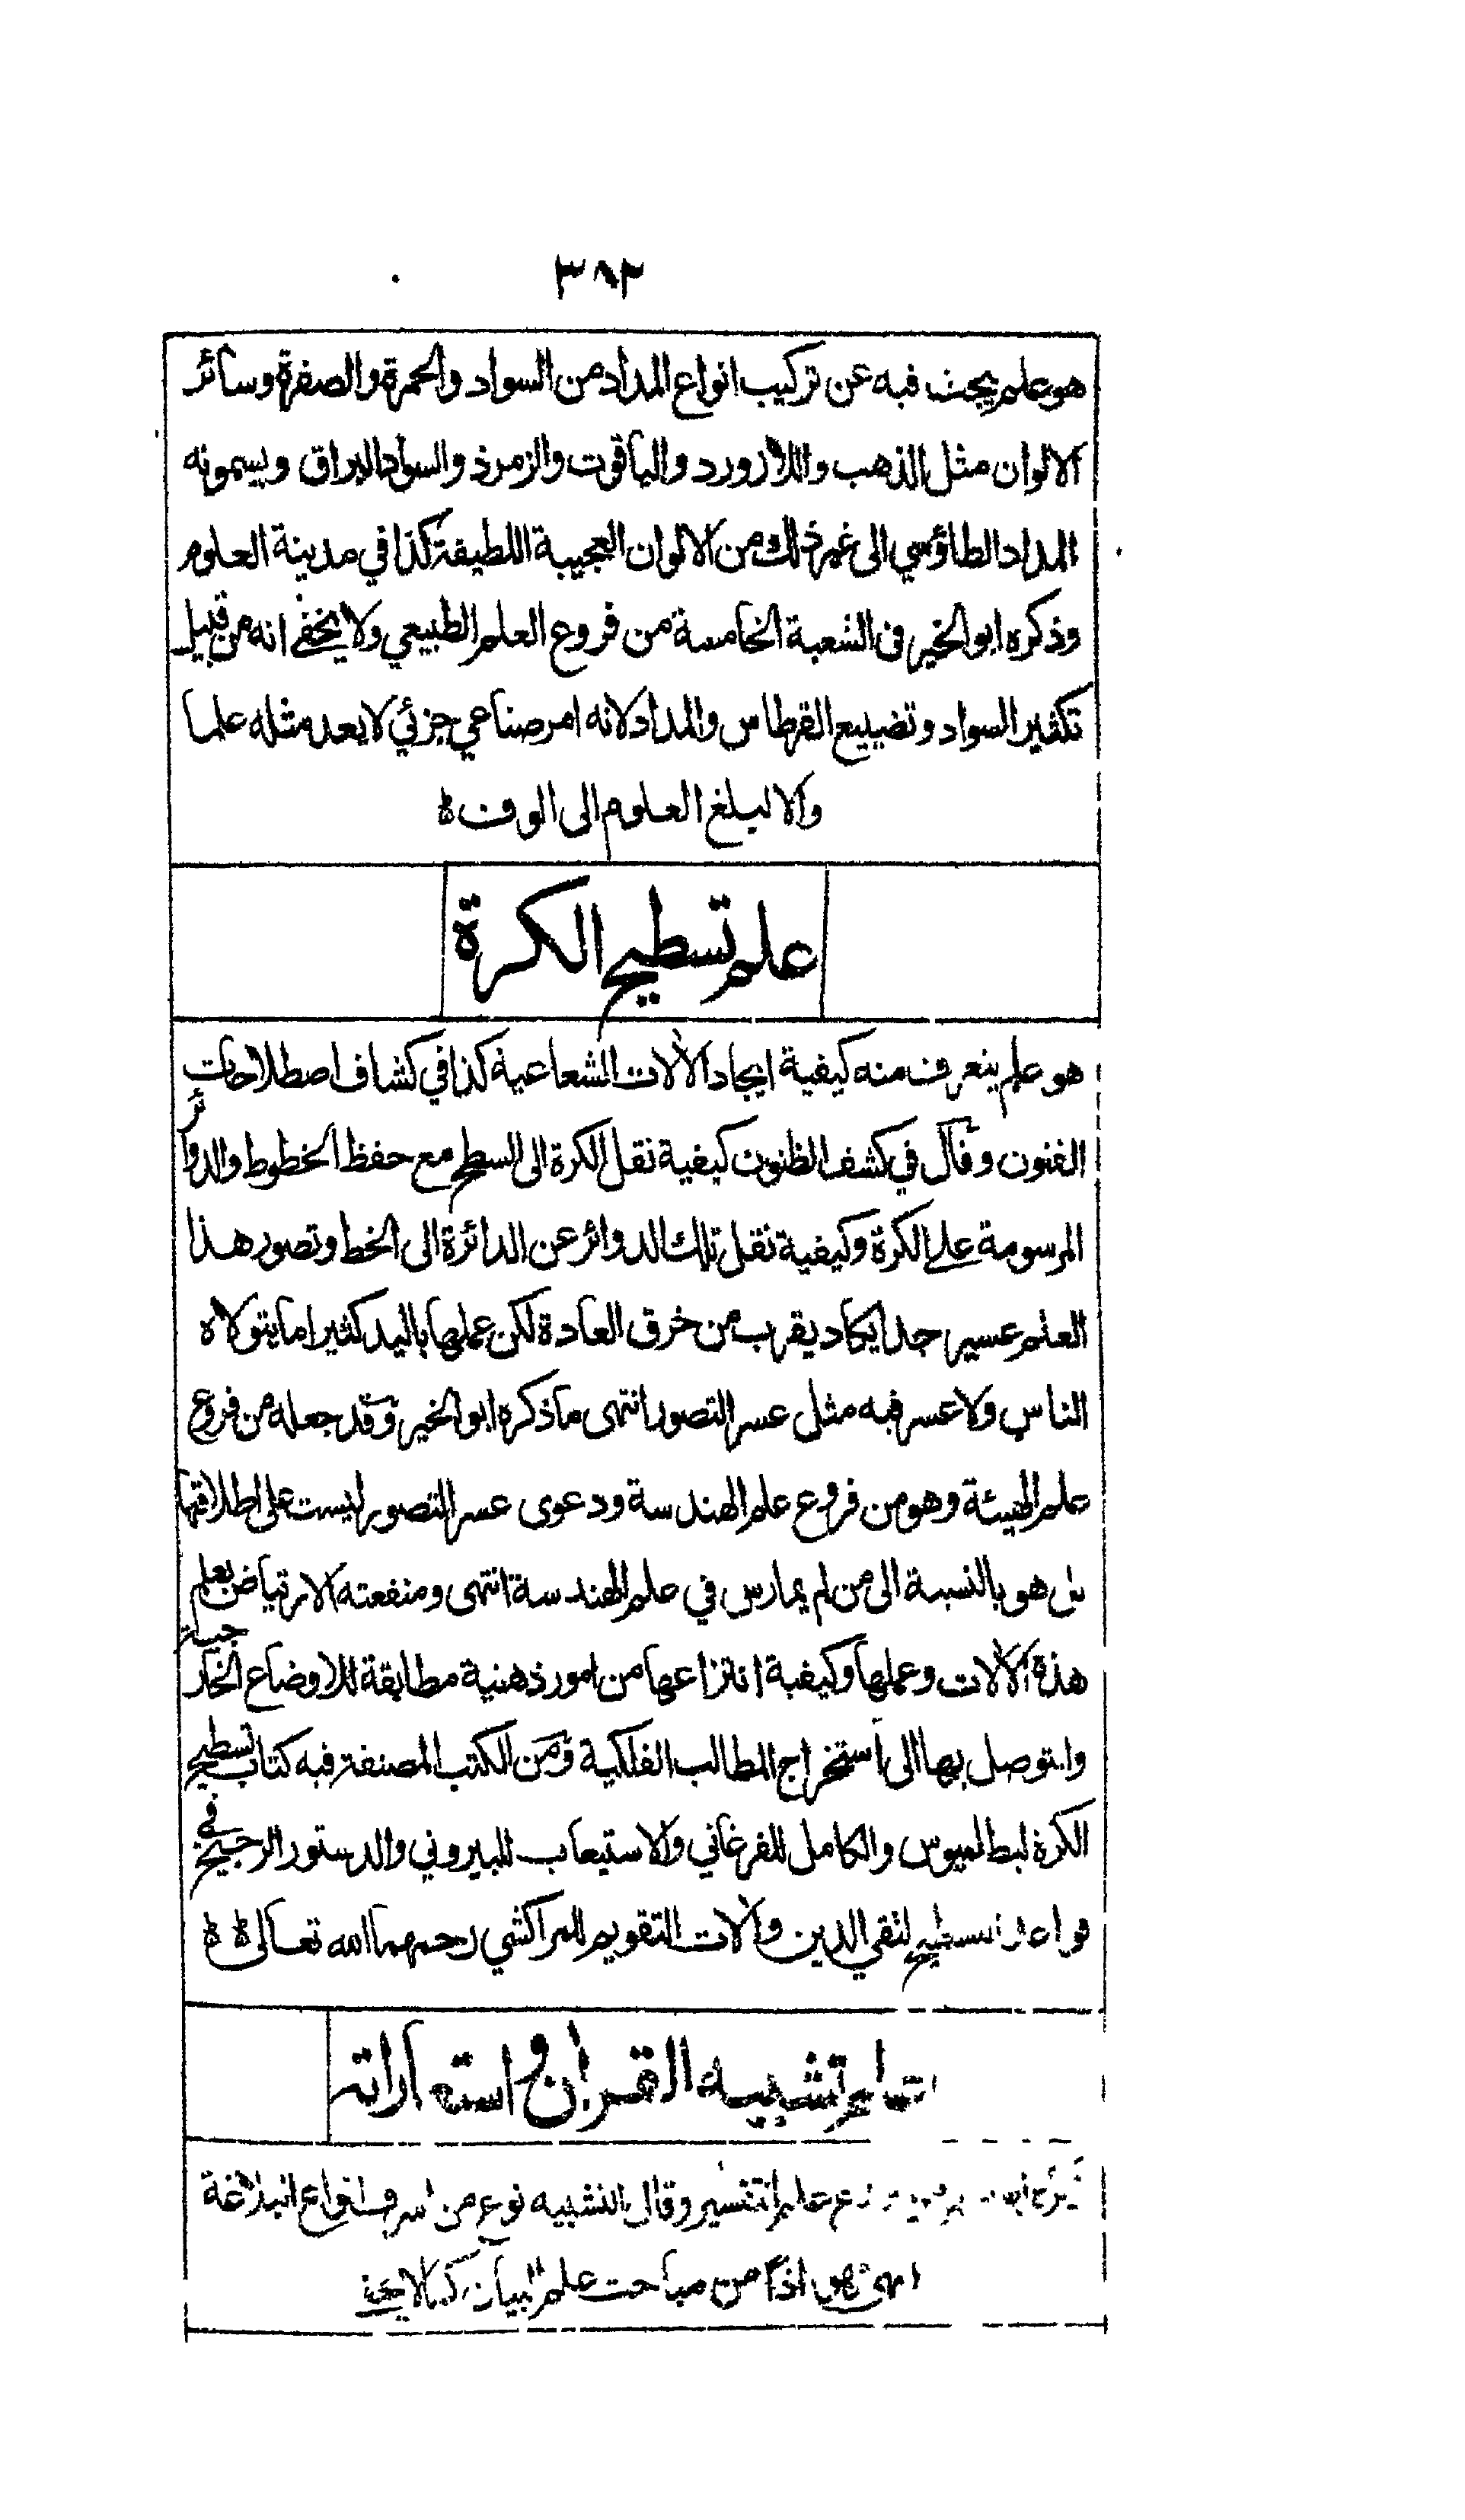 ٣٨٢
هو علم يبحث فيه عن تركيب انواع المداد من السواد والحمرة والصفرة وسائر
الالوان مثل الذهب واللازورد والياقوت والزمرذ والسواد البراق ويسمونه
المداد الطاؤسي الى غير ذلك من الالوان العجيبة اللطيفة كذا في مدينة العلوم
وذكره ابو الخير فى الشعبة الخامسة من فروع العلم الطبيعي ولا يخفى انه من قبيل
تكثير السواد وتضييع القرطاس والمداد لانه امر صناعي جزئي لا يعد مثله علما
والا لبلغ العلوم الى الوف ه
علم تسطيح الكرة
هو علم يتعرف منه كيفية ايجاد الآلات الشعاعية كذا في كشاف اصطلاحات
الفنون وقال في كشف الظنون كيفية نقل الكرة الى السطح مع حفظ الخطوط والدوائر
المرسومة على الكرة وكيفية نقل تلك الدوائر عن الدائرة الى الخط وتصور هذا
العلم عسير جدا يكاد يقرب من خرق العادة لكن عملها باليد كثيرا ما يتولاه
الناس ولا عسر فيه مثل عسر التصور انتهى ما ذكره ابو الخير وقد جعله من فروع
علم الهيئة وهو من فروع علم الهندسة ودعوى عسر التصور ليست على اطلاقها
بل هو بالنسبة الى من لم يمارس في علم الهندسة انتهى ومنفعته الارتياض بعلم
هذه الآلات وعملها وكيفية انتزاعها من امور ذهنية مطابقة للاوضاع الخارجية
وايتوصل بها الى استخراج المطالب الفلكية ومن الكتب المصنفة فيه كتاب تسطيح
الكرة لبطلميوس والكامل للفرغاني والاستيعاب للبيروني والدستور الرجيح في
قواعد التسطيح لتقي الدين وآلات التقويم للمراكشي رحمهم الله تعالى ه ه
علم تشبيه القرآن واستعاراته
علم التفسير وقال التشبيه نوع من اشرف انواع البلاغة
انتهى فهى اذًا من مباحث علم البيان كما لا يخفى